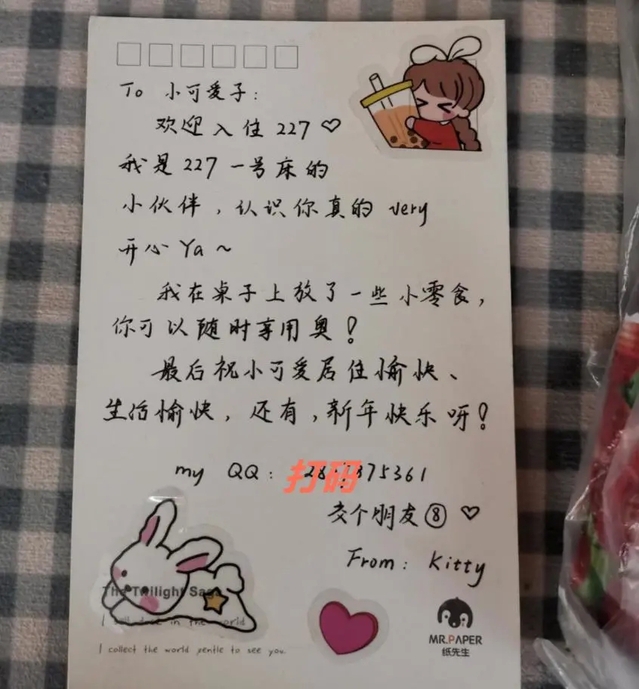 To 小可爱子：
欢迎入住 227 ♡
我是 227 一号床的
小伙伴，认识你真的 very
开心 Ya ~
我在桌子上放了一些小零食，
你可以随时享用奥！
最后祝小可爱居住愉快、
生活愉快，还有，新年快乐呀！
my QQ：
打码
交个朋友⑧ ♡
From：Kitty
The Twilight Saga
in the world
I collect the world pentle to see you.
MR.PAPER
纸先生